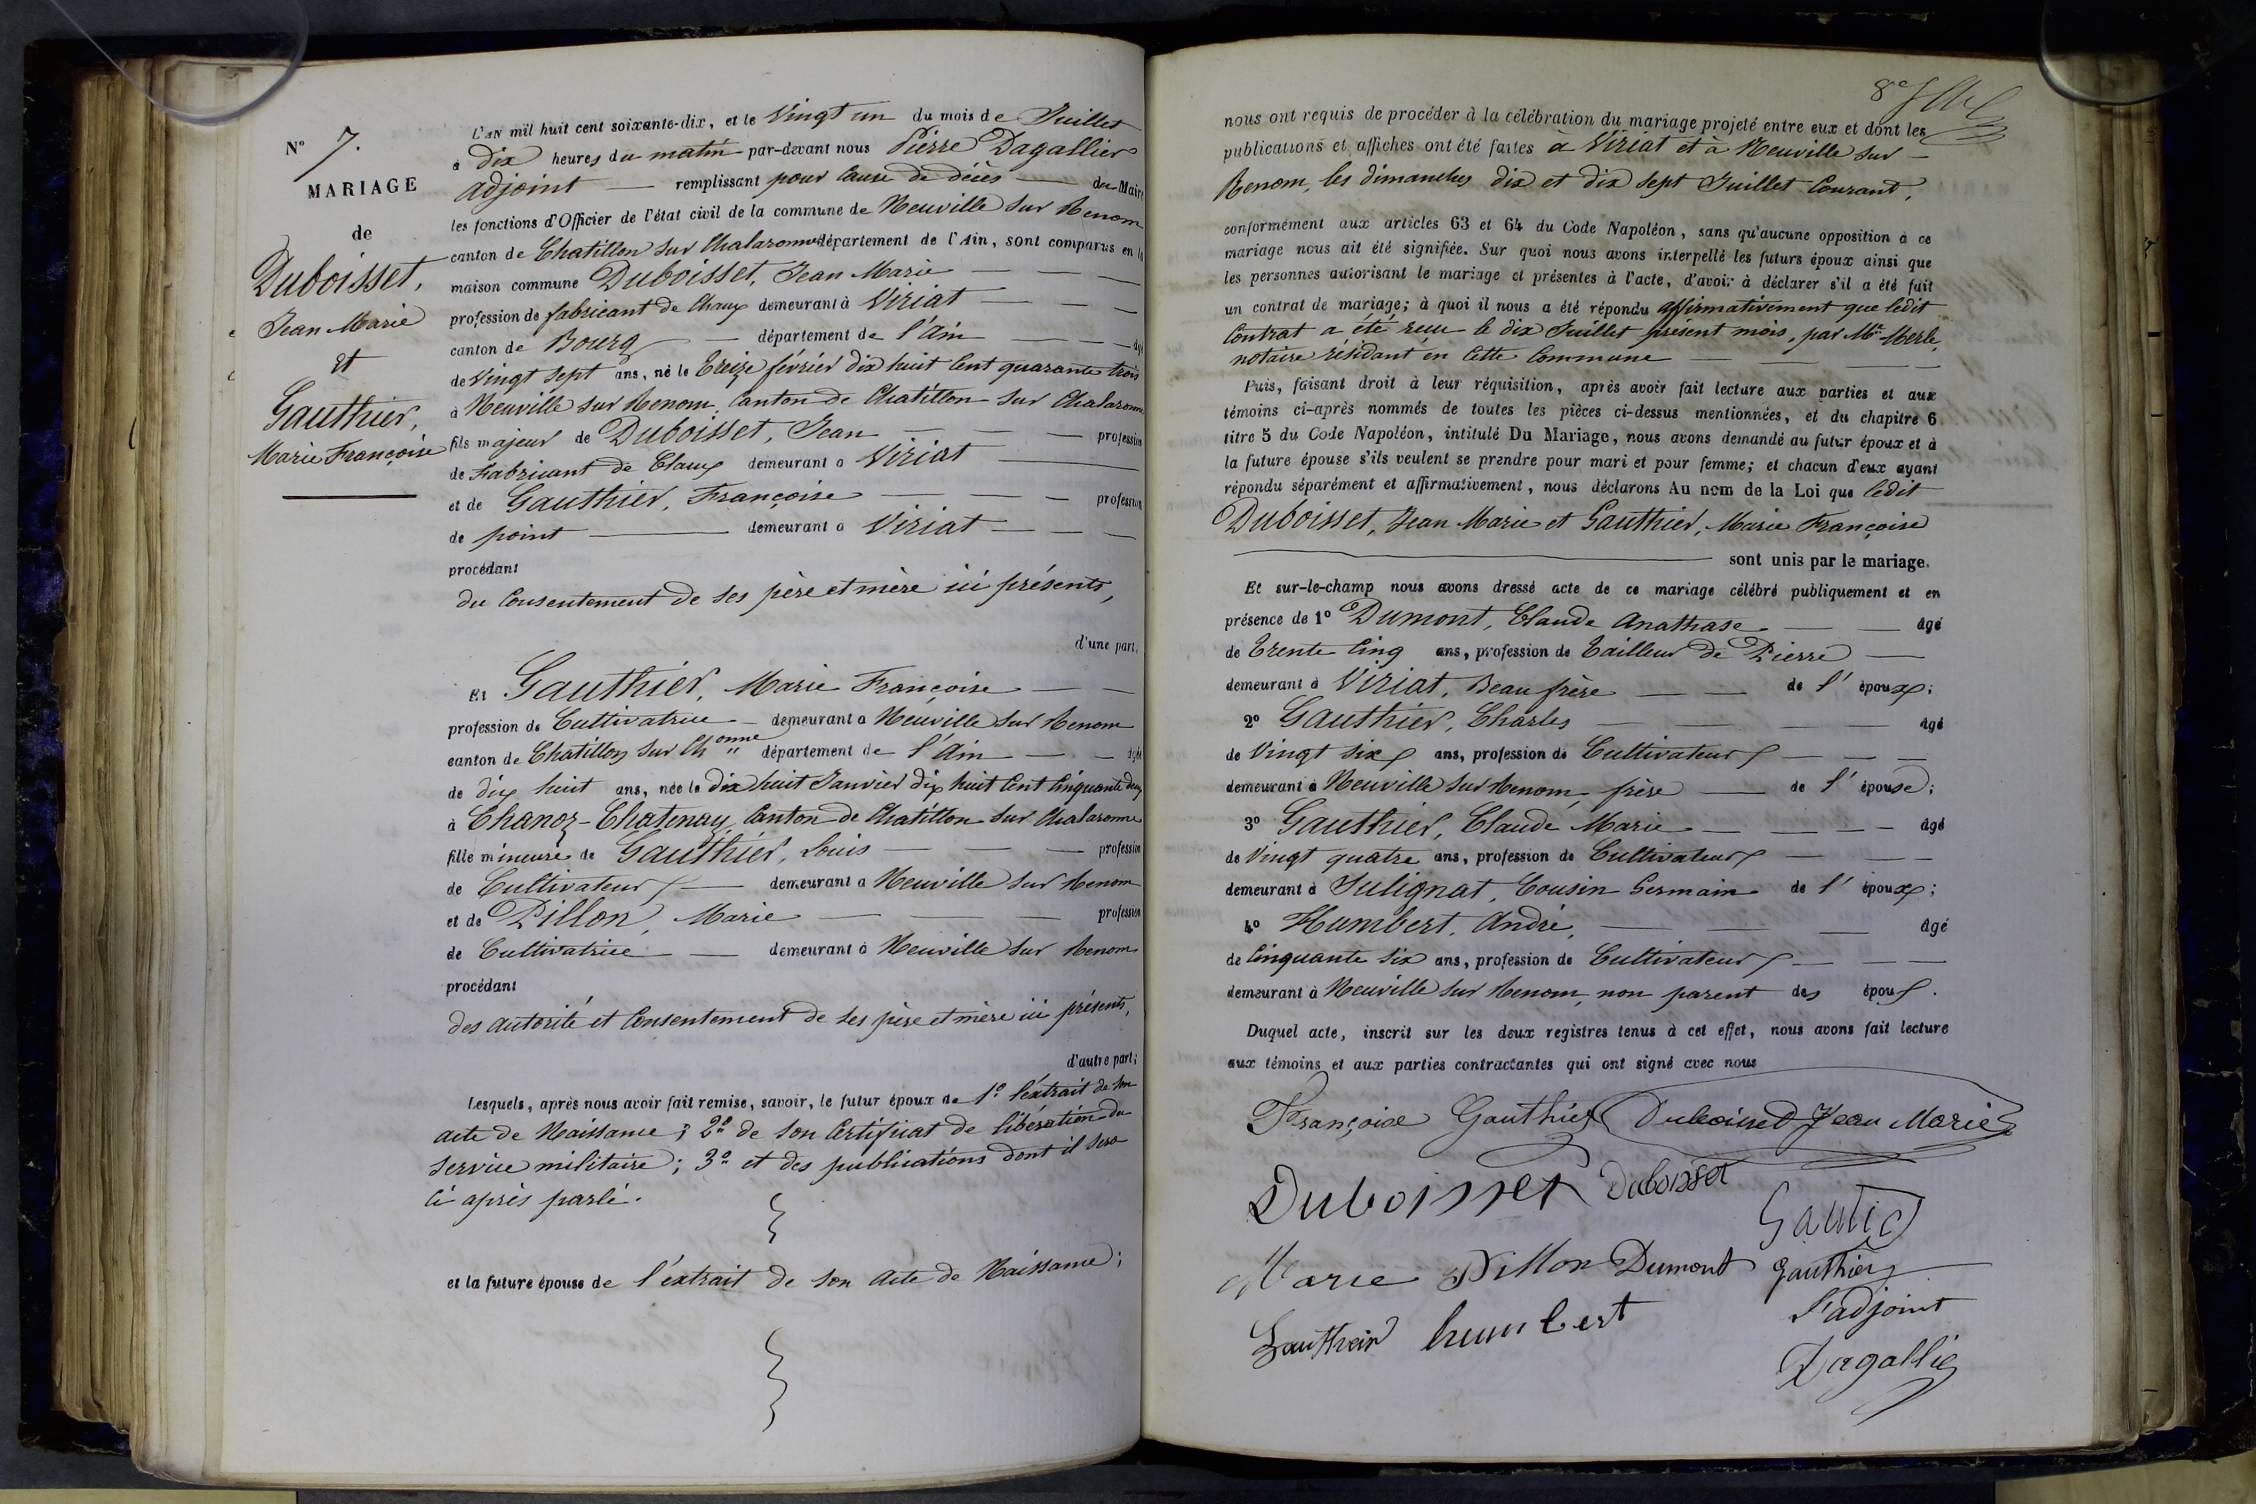 N° 7.
MARIAGE
de
Duboisset,
Jean Marie
et
Gauthier,
Marie Françoise
L'AN mil huit cent soixante-dix, et le Vingt un du mois de Juillet
à dix heures du matin par-devant nous Pierre Dagallier
adjoint — remplissant pour Cause de décès — du Maire
les fonctions d'Officier de l'état civil de la commune de Neuville sur Renom
canton de Chatillon sur Chalaronne département de l'Ain, sont comparus en la
maison commune Duboisset, Jean Marie — — —
profession de fabricant de Chaux demeurant à Viriat — — —
canton de Bourg — département de l'Ain — — — âgé
de Vingt sept ans, né le Treize février dix huit Cent quarante trois
à Neuville sur Renom, Canton de Chatillon sur Chalaronne
fils majeur de Duboisset, Jean — — — profession
de Fabricant de Chaux demeurant à Viriat —
et de Gauthier, Françoise — — — profession
de point — demeurant à Viriat — — —
procédant
du Consentement de ses père et mère ici présents,
d'une part,
Et Gauthier, Marie Françoise — —
profession de Cultivatrice — demeurant à Neuville sur Renom
canton de Chatillon sur Chonne département de l'Ain — — âgée
de dix huit ans, née le dix huit Janvier dix huit Cent Cinquante deux
à Chanoz-Chatenay, Canton de Chatillon sur Chalaronne
fille mineure de Gauthier, Louis — — — profession
de Cultivateur — demeurant à Neuville sur Renom
et de Pillon, Marie — — — profession
de Cultivatrice — demeurant à Neuville sur Renom
procédant
des autorité et Consentement de ses père et mère ici présents,
d'autre part;
Lesquels, après nous avoir fait remise, savoir, le futur époux de 1° l'extrait de son
acte de Naissance; 2° de son Certificat de libération du
service militaire; 3° et des publications dont il sera
Ci après parlé.
et la future épouse de l'extrait de son acte de Naissance;
nous ont requis de procéder à la célébration du mariage projeté entre eux et dont les
publications et affiches ont été faites à Viriat et à Neuville sur —
Renom, les dimanches dix et dix sept Juillet Courant,
conformément aux articles 63 et 64 du Code Napoléon, sans qu'aucune opposition à ce
mariage nous ait été signifiée. Sur quoi nous avons interpellé les futurs époux ainsi que
les personnes autorisant le mariage et présentes à l'acte, d'avoir à déclarer s'il a été fait
un contrat de mariage; à quoi il nous a été répondu affirmativement que ledit
Contrat a été reçu le dix Juillet présent mois, par Me Merle,
notaire résidant en Cette Commune — — —
Puis, faisant droit à leur réquisition, après avoir fait lecture aux parties et aux
témoins ci-après nommés de toutes les pièces ci-dessus mentionnées, et du chapitre 6
titre 5 du Code Napoléon, intitulé Du Mariage, nous avons demandé au futur époux et à
la future épouse s'ils veulent se prendre pour mari et pour femme; et chacun d'eux ayant
répondu séparément et affirmativement, nous déclarons Au nom de la Loi que ledit
Duboisset, Jean Marie et Gauthier, Marie Françoise
— sont unis par le mariage.
Et sur-le-champ nous avons dressé acte de ce mariage célébré publiquement et en
présence de 1° Dumont, Claude Anathase — — âgé
de Trente Cinq ans, profession de Tailleur de Pierre —
demeurant à Viriat, Beau frère — — de l'époux;
2° Gauthier, Charles — — — âgé
de Vingt Six ans, profession de Cultivateur — — —
demeurant à Neuville sur Renom, frère — de l'épouse;
3° Gauthier, Claude Marie — — — — âgé
de Vingt quatre ans, profession de Cultivateur — — —
demeurant à Sulignat, Cousin Germain de l'époux;
4° Humbert, André, — — — âgé
de Cinquante Six ans, profession de Cultivateur — — —
demeurant à Neuville sur Renom, non parent des époux.
Duquel acte, inscrit sur les deux registres tenus à cet effet, nous avons fait lecture
aux témoins et aux parties contractantes qui ont signé avec nous
Françoise Gauthier Duboisset Jean Marie
Duboisset Duboisset
Marie Pillon Dumont Gauthier
l'adjoint
humbert
Dagallier